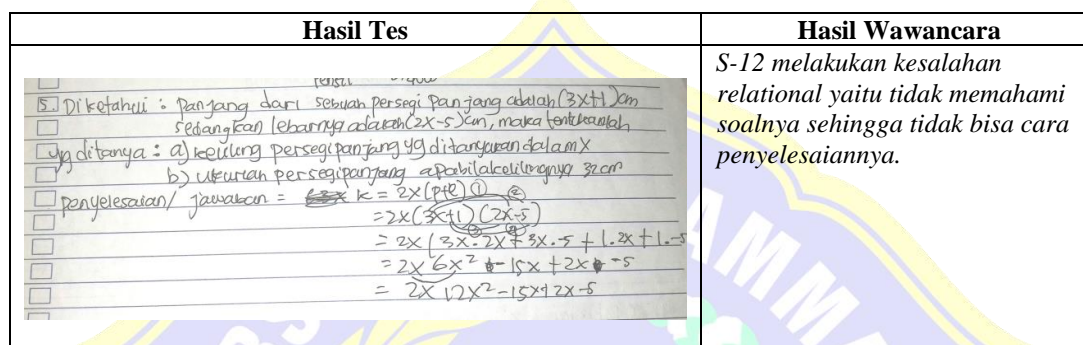 Hasil Tes
Hasil Wawancara
5. Diketahui : panjang dari sebuah persegi panjang adalah (3x+1) cm
sedangkan lebarnya adalah (2x-5) cm, maka tentukanlah
yg ditanya : a) keliling persegi panjang yg ditanyakan dalam x
b) ukuran persegi panjang apabila kelilingnya 32cm
penyelesaian/ jawaban = K = 2x(p+l) ① ②
=2x(3x+1) (2x-5)
③ ④
= 2x (3x.2x + 3x.-5 + 1.2x + 1.-5
= 2x 6x² -15x + 2x -5
= 2x 12x² -15x+2x-5
S-12 melakukan kesalahan
relational yaitu tidak memahami
soalnya sehingga tidak bisa cara
penyelesaiannya.